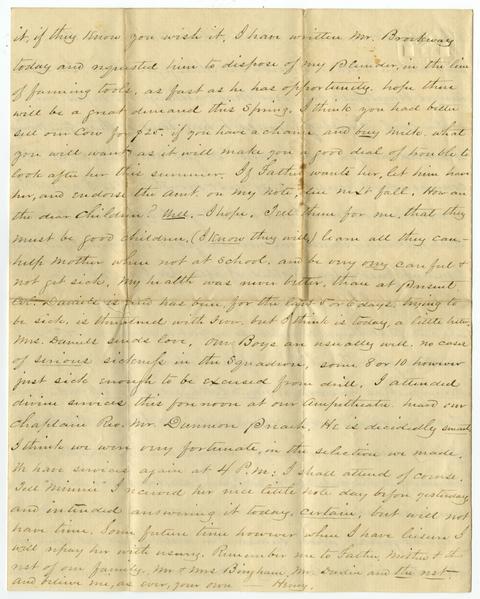 it, if they know you wish it, I have written Mr. Brockway
today and requested him to dispose of my plunder, in the line
of farming tools, as fast as he has opportunity. hope there
will be a great demand this Spring. I think you had better
sell our Cow for $25. if you have a chance and buy milk. what
you will want, as it will make you a good deal of trouble to
look after her this summer. If Father wants her, let him have
her, and endorse the Amt. on my note, due next fall. How are
the dear children? Well. - I hope. Tell them for me, that they
must be good children, (I know they will,) learn all they can -
help mother when not at School. and be very very careful &
not get sick. My health was never better, than at present
Col. Daniels is and has been, for the last 5 or 6 days, trying to
be sick, is threatened with Fever. but I think is today, a little better,
Mrs. Daniels sends love. Our Boys are usually well. no cases
of serious sickness in the Squadron, some 8 or 10 however
just sick enough to be excused from drill. I attended
divine services this forenoon at our Ampitheatre. heard our
Chaplain Rev. Mr. Dunmon Preach. He is decidedly smart
I think we were very fortunate, in the selection we made.
We have services again at 4 P.M; I shall attend of course.
Tell "Minnie" I received her nice little note day before yesterday
and intended answering it today, certain, but will not
have time. Some future time however when I have liesure I
will repay her with usury. Remember me to Father, Mother & the
rest of our family, Mr & Mrs Bingham, Mr. and the rest.
and believe me, as ever, your own — Henry.